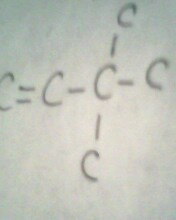 C
C=C-C-C
C